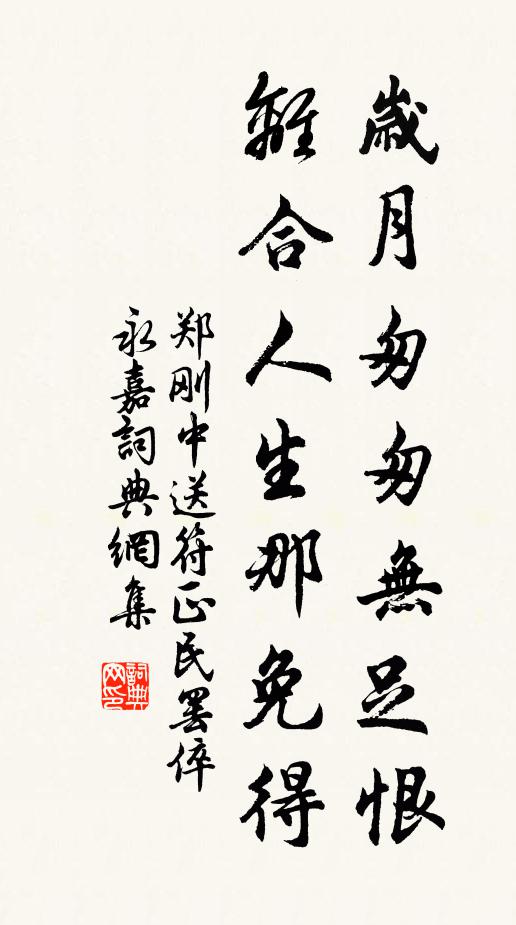 歲月匆匆無足恨
離合人生那免得
郑刚中送符正民罢倅永嘉
詞典網集
詞典网印